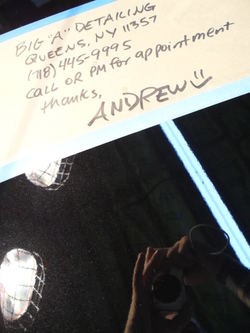 BIG "A" DETAILING
QUEENS, NY 11357
(718) 445-9995
CALL OR PM for appointment
thanks,
ANDREW